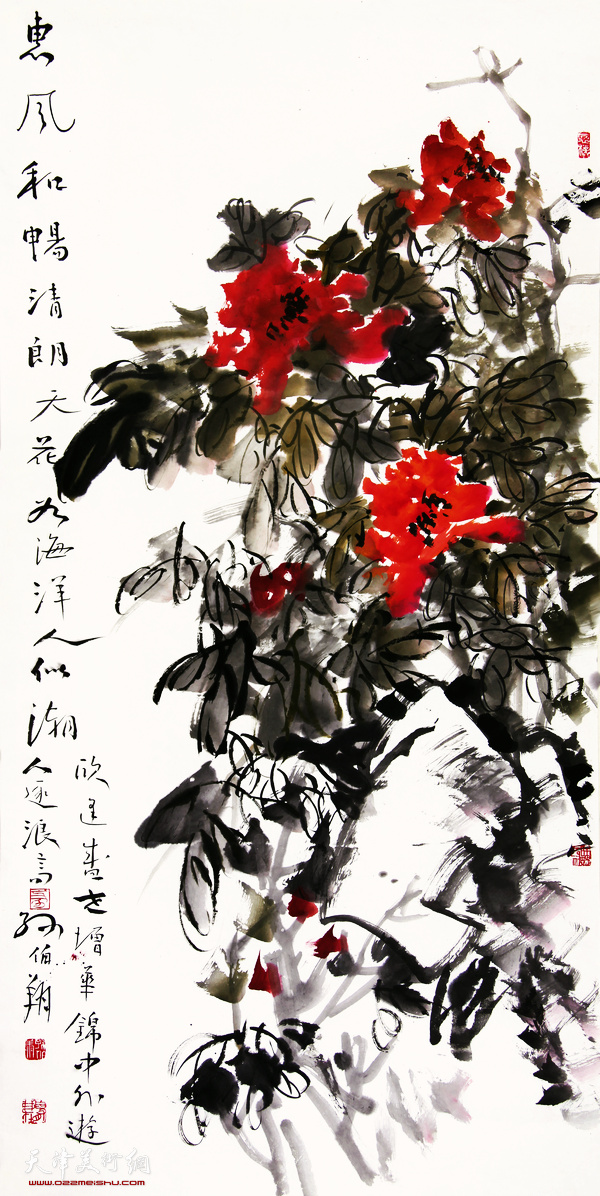 惠风和暢清朗天花如海洋人似潮
欣逢盛世增華錦中外遊
人逐浪高
孙伯翔
天津美术网
www.022meishu.com